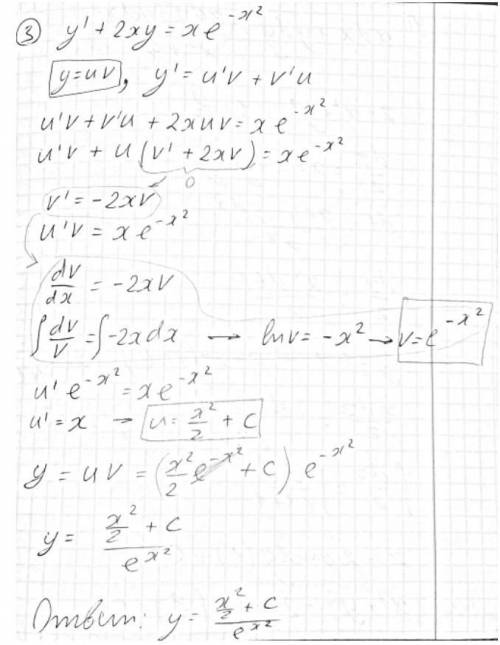 ③ y' + 2xy = xe^{-x^2}
y=uv, y' = u'v + v'u
u'v + v'u + 2xuv = xe^{-x^2}
u'v + u(v' + 2xv) = xe^{-x^2}
0
v' = -2xv
u'v = xe^{-x^2}
dv/dx = -2xv
∫dv/v = ∫-2xdx → lnv = -x^2 → v=e^{-x^2}
u' e^{-x^2} = xe^{-x^2}
u' = x → u = x^2/2 + C
y = uv = (x^2/2 + C) e^{-x^2}
y = (x^2/2 + C)/e^{x^2}
Ответ: y = (x^2/2 + C)/e^{x^2}